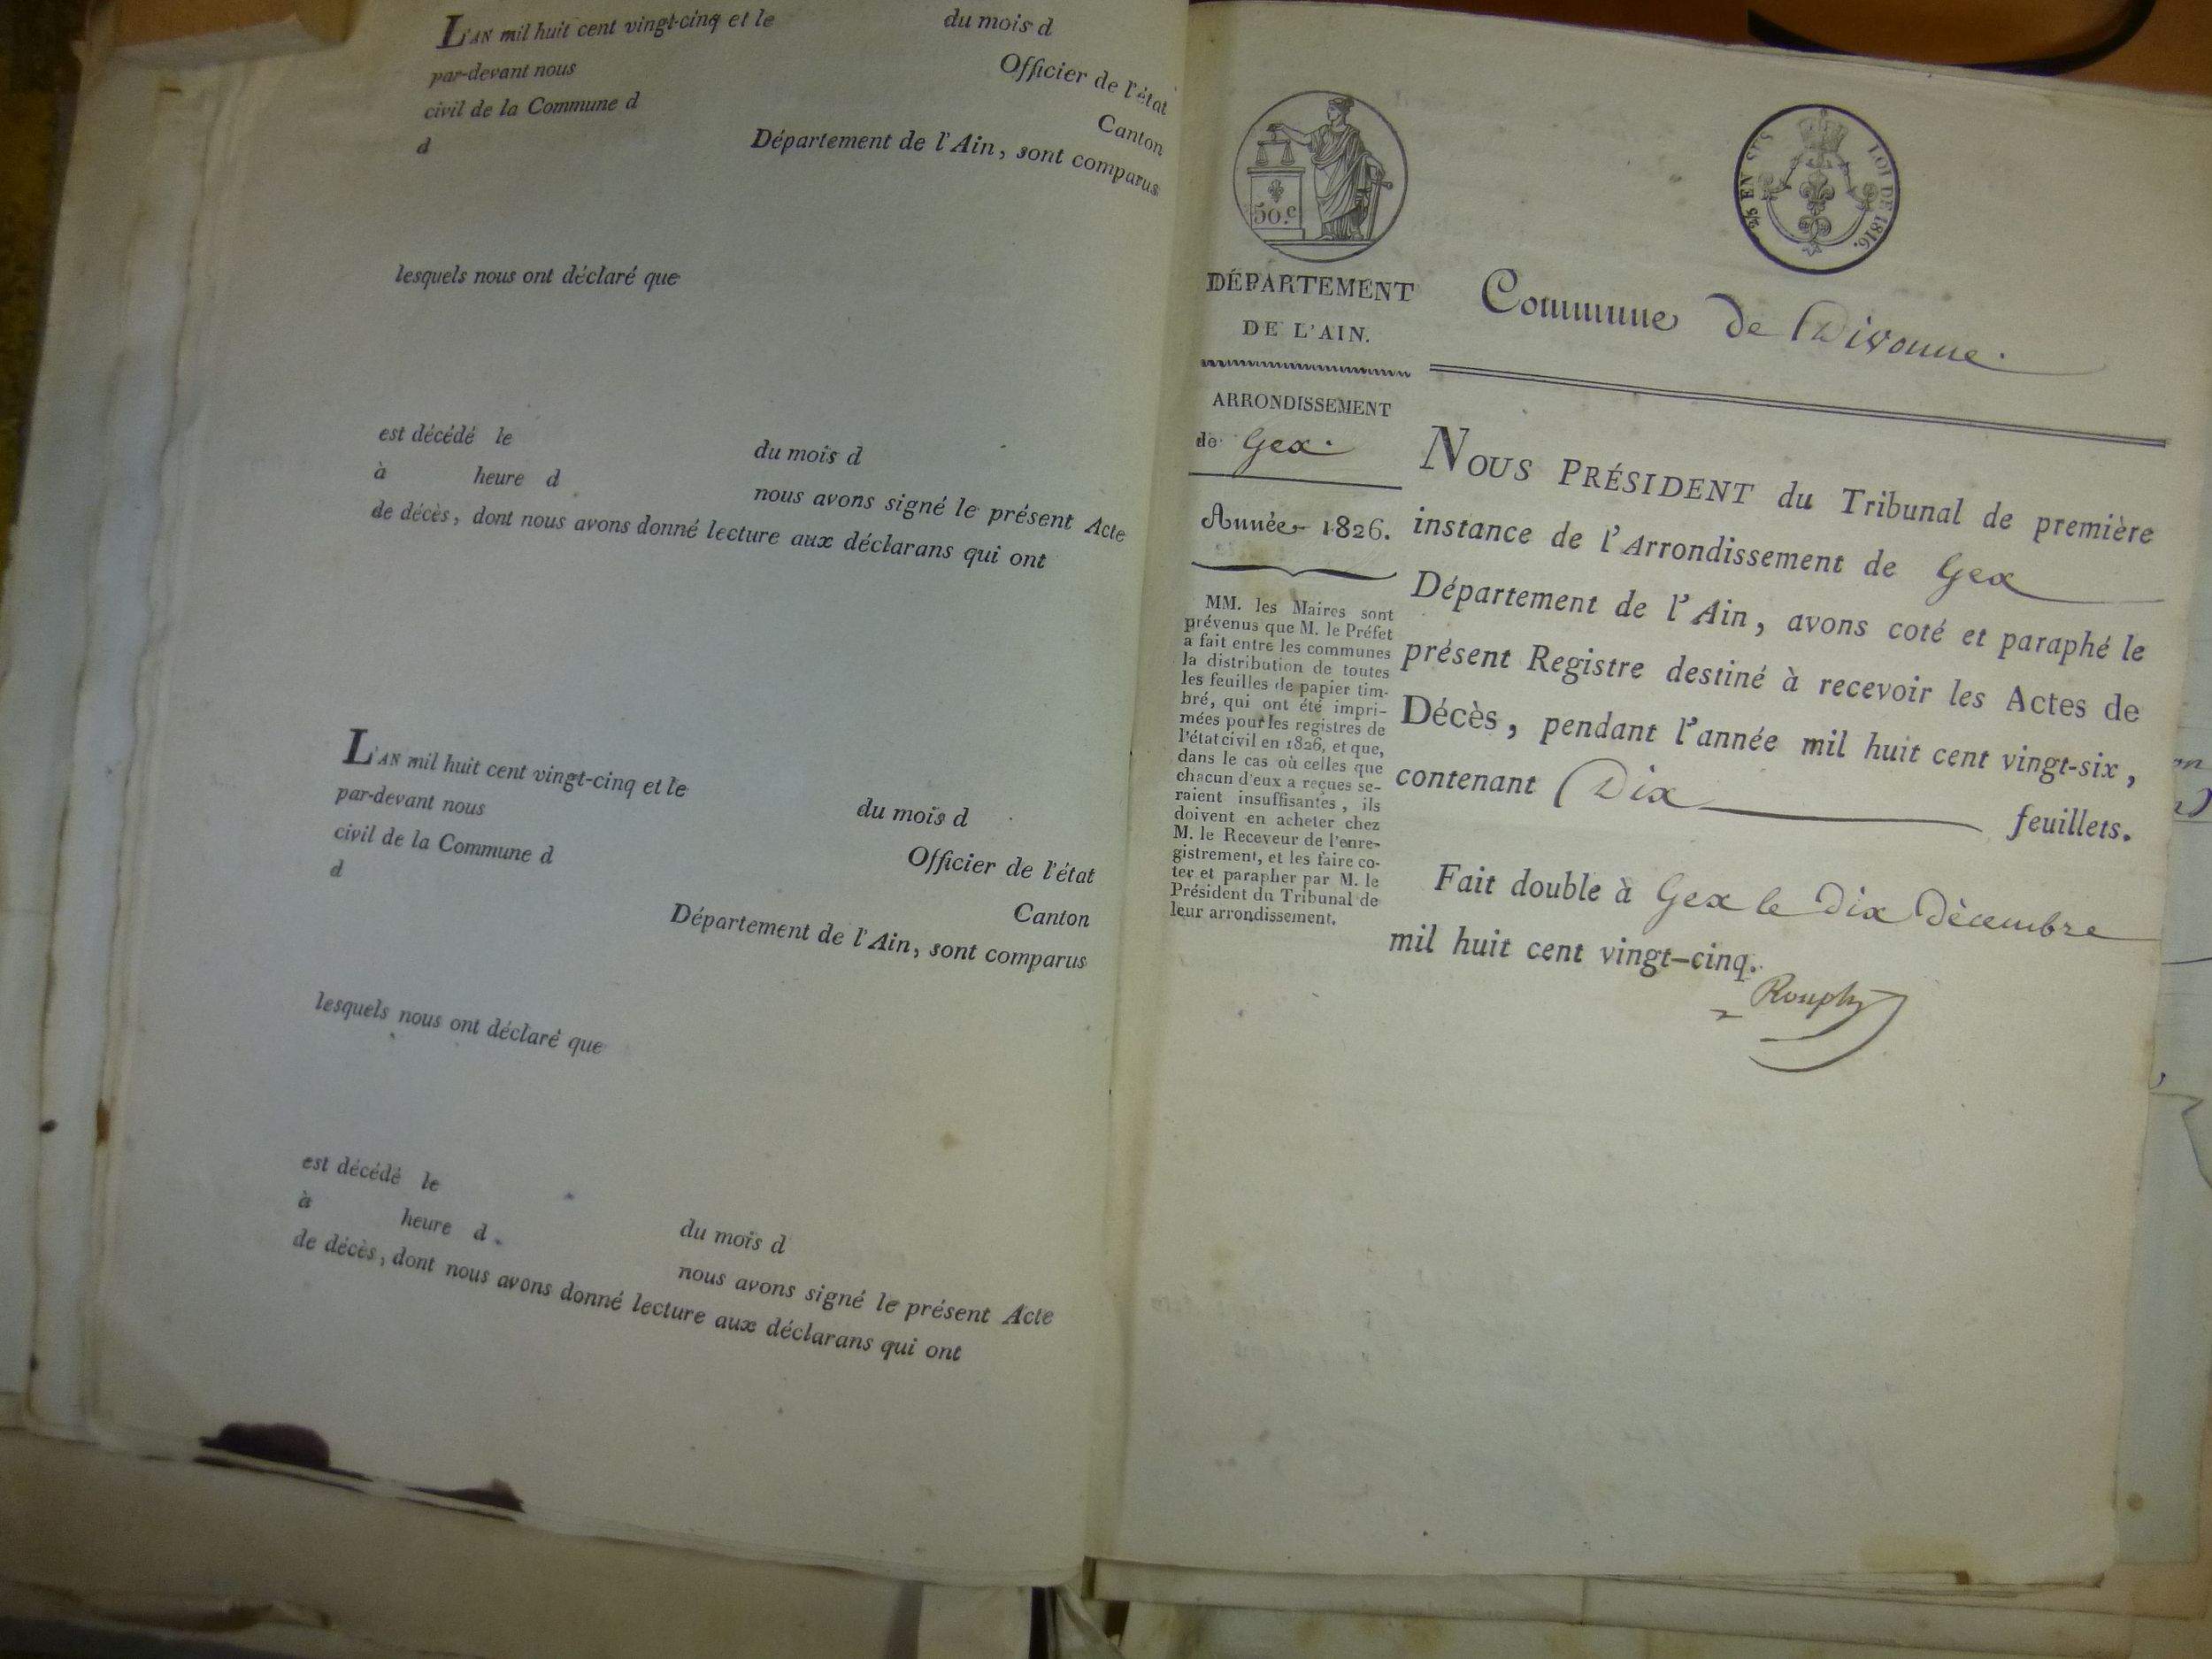 L'AN mil huit cent vingt-cinq et le du mois d
par-devant nous Officier de l'état
civil de la Commune d Canton
d Département de l'Ain, sont comparus
lesquels nous ont déclaré que
est décédé le du mois d
à heure d nous avons signé le présent Acte
de décès, dont nous avons donné lecture aux déclarans qui ont
L'AN mil huit cent vingt-cinq et le du mois d
par-devant nous Officier de l'état
civil de la Commune d Canton
d Département de l'Ain, sont comparus
lesquels nous ont déclaré que
est décédé le du mois d
à heure d nous avons signé le présent Acte
de décès, dont nous avons donné lecture aux déclarans qui ont
50.c
EN SUS
LOI DE 1816.
DÉPARTEMENT
DE L'AIN.
ARRONDISSEMENT
de Gex.
Année 1826.
MM. les Maires sont
prévenus que M. le Préfet
a fait entre les communes
la distribution de toutes
les feuilles de papier tim-
bré, qui ont été impri-
mées pour les registres de
l'état civil en 1826, et que,
dans le cas où celles que
chacun d'eux a reçues se-
raient insuffisantes, ils
doivent en acheter chez
M. le Receveur de l'enre-
gistrement, et les faire co-
ter et parapher par M. le
Président du Tribunal de
leur arrondissement.
Commune de Divonne.
NOUS PRÉSIDENT du Tribunal de première
instance de l'Arrondissement de Gex
Département de l'Ain, avons coté et paraphé le
présent Registre destiné à recevoir les Actes de
Décès, pendant l'année mil huit cent vingt-six,
contenant Dix feuillets.
Fait double à Gex le Dix Décembre
mil huit cent vingt-cinq.